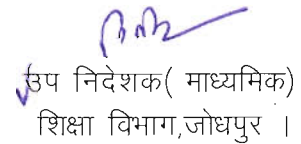 उप निदेशक( माध्यमिक)
शिक्षा विभाग,जोधपुर ।